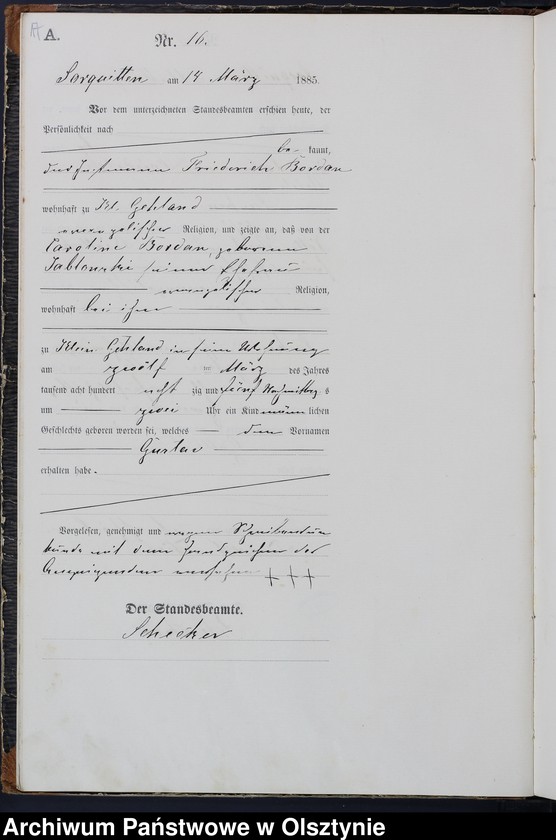 A.
Nr. 16.
Sorquitten am 14 März 1885.
Vor dem unterzeichneten Standesbeamten erschien heute, der
Persönlichkeit nach
be- kannt,
der Friederich Bordan
wohnhaft zu Kl. Gehland
evangelischer Religion, und zeigte an, daß von der
Caroline Bordan, geborenen
Jablonski seiner Ehefrau
evangelischer Religion,
wohnhaft bei ihm
zu Klein Gehland in seiner Wohnung
am zwölf ten März des Jahres
tausend acht hundert acht zig und fünf Nachmittag s
um zwei Uhr ein Kind männ lichen
Geschlechts geboren worden sei, welches den Vornamen
Gustav
erhalten habe.
Vorgelesen, genehmigt und wegen Schreibensun
kunde mit dem Handzeichen des
Anzeigenden versehen +++
Der Standesbeamte.
Archiwum Państwowe w Olsztynie